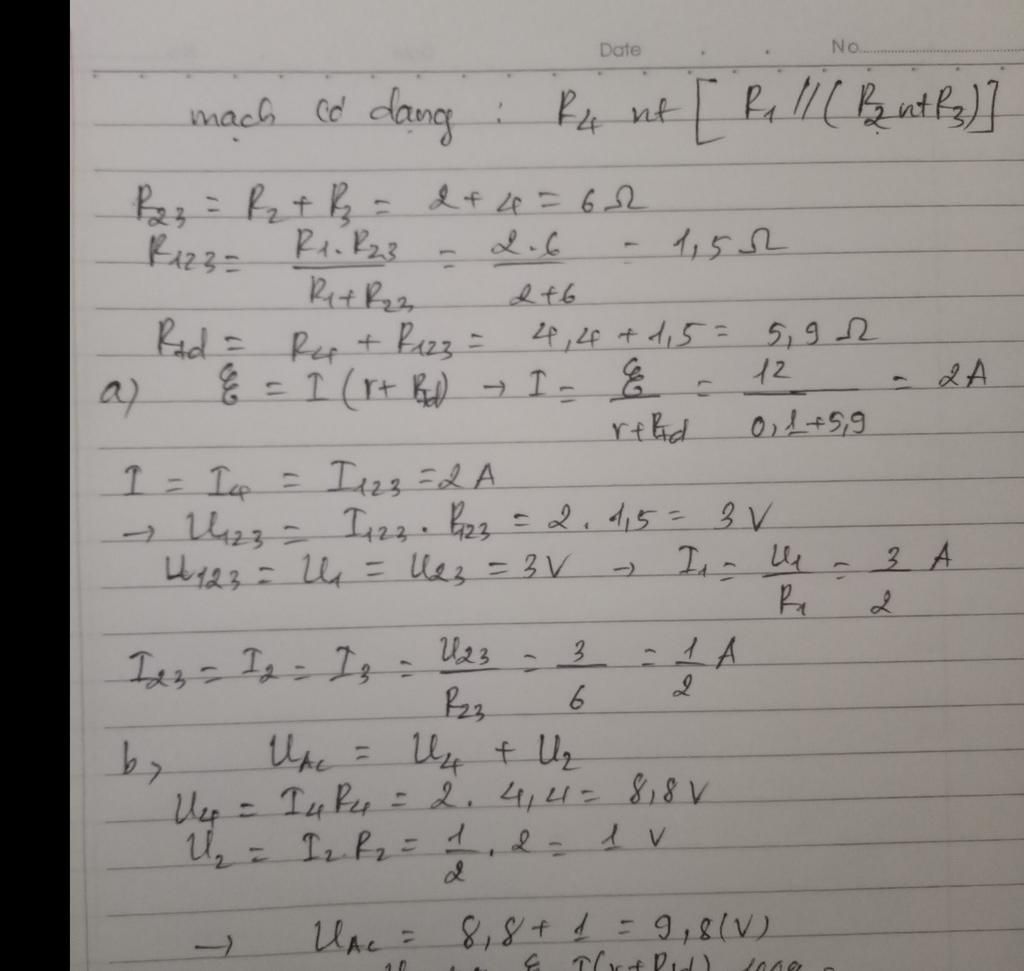 Date No
mạch có dạng : R4 nt [ R1 // ( R2 nt R3 ) ]
R23 = R2 + R3 = 2 + 4 = 6 Ω
R123 = R1.R23 / R1+R23 = 2.6 / 2+6 = 1,5 Ω
Rtd = R4 + R123 = 4,4 + 1,5 = 5,9 Ω
a) ℰ = I (r + Rtd) → I = ℰ / r+Rtd = 12 / 0,1+5,9 = 2A
I = I4 = I123 = 2 A
→ U123 = I123 . R123 = 2 . 1,5 = 3 V
U123 = U1 = U23 = 3V → I1 = U1 / R1 = 3 / 2 A
I23 = I2 = I3 = U23 / R23 = 3 / 6 = 1 / 2 A
b, UAC = U4 + U2
U4 = I4 R4 = 2 . 4,4 = 8,8 V
U2 = I2.R2 = 1 / 2 . 2 = 1 V
→ UAC = 8,8 + 1 = 9,8 (V)